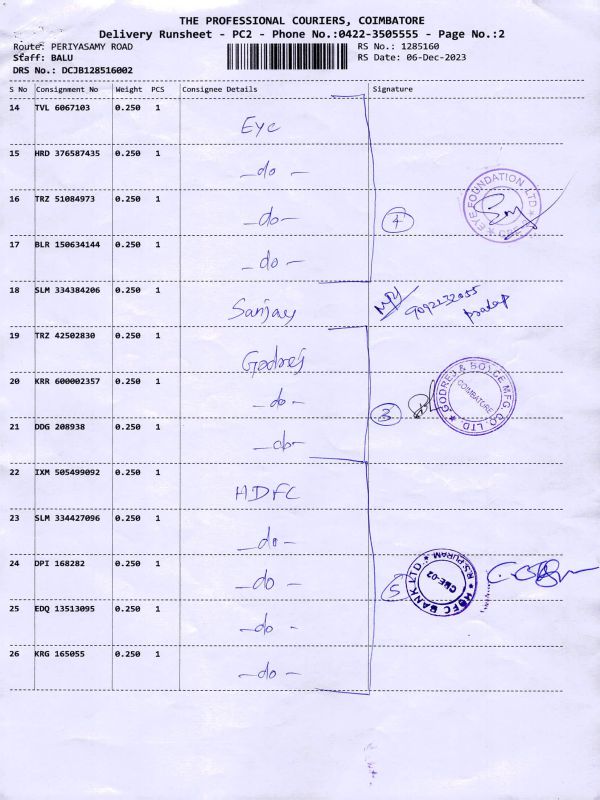 THE PROFESSIONAL COURIERS, COIMBATORE
Delivery Runsheet - PC2 - Phone No.:0422-3505555 - Page No.:2
Route: PERIYASAMY ROAD
RS No.: 1285160
Staff: BALU
RS Date: 06-Dec-2023
DRS No.: DCJB128516002
S No Consignment No Weight PCS Consignee Details Signature
14 TVL 6067103 0.250 1 Eye
15 HRD 376587435 0.250 1 -do-
16 TRZ 51084973 0.250 1 -do-
4
EYE FOUNDATION LTD
17 BLR 150634144 0.250 1 -do-
18 SLM 334384206 0.250 1 Sanjay
9092132055
pratap
19 TRZ 42502830 0.250 1 Godrej
20 KRR 600002357 0.250 1 -do-
3
GODREJ & BOYCE MFG. CO. LTD.
COIMBATORE
21 DDG 208938 0.250 1 -do-
22 IXM 505499092 0.250 1 HDFC
23 SLM 334427096 0.250 1 -do-
24 DPI 168282 0.250 1 -do-
5
HDFC BANK LTD
R.S. PURAM
CBE-02
25 EDQ 13513095 0.250 1 -do-
26 KRG 165055 0.250 1 -do-